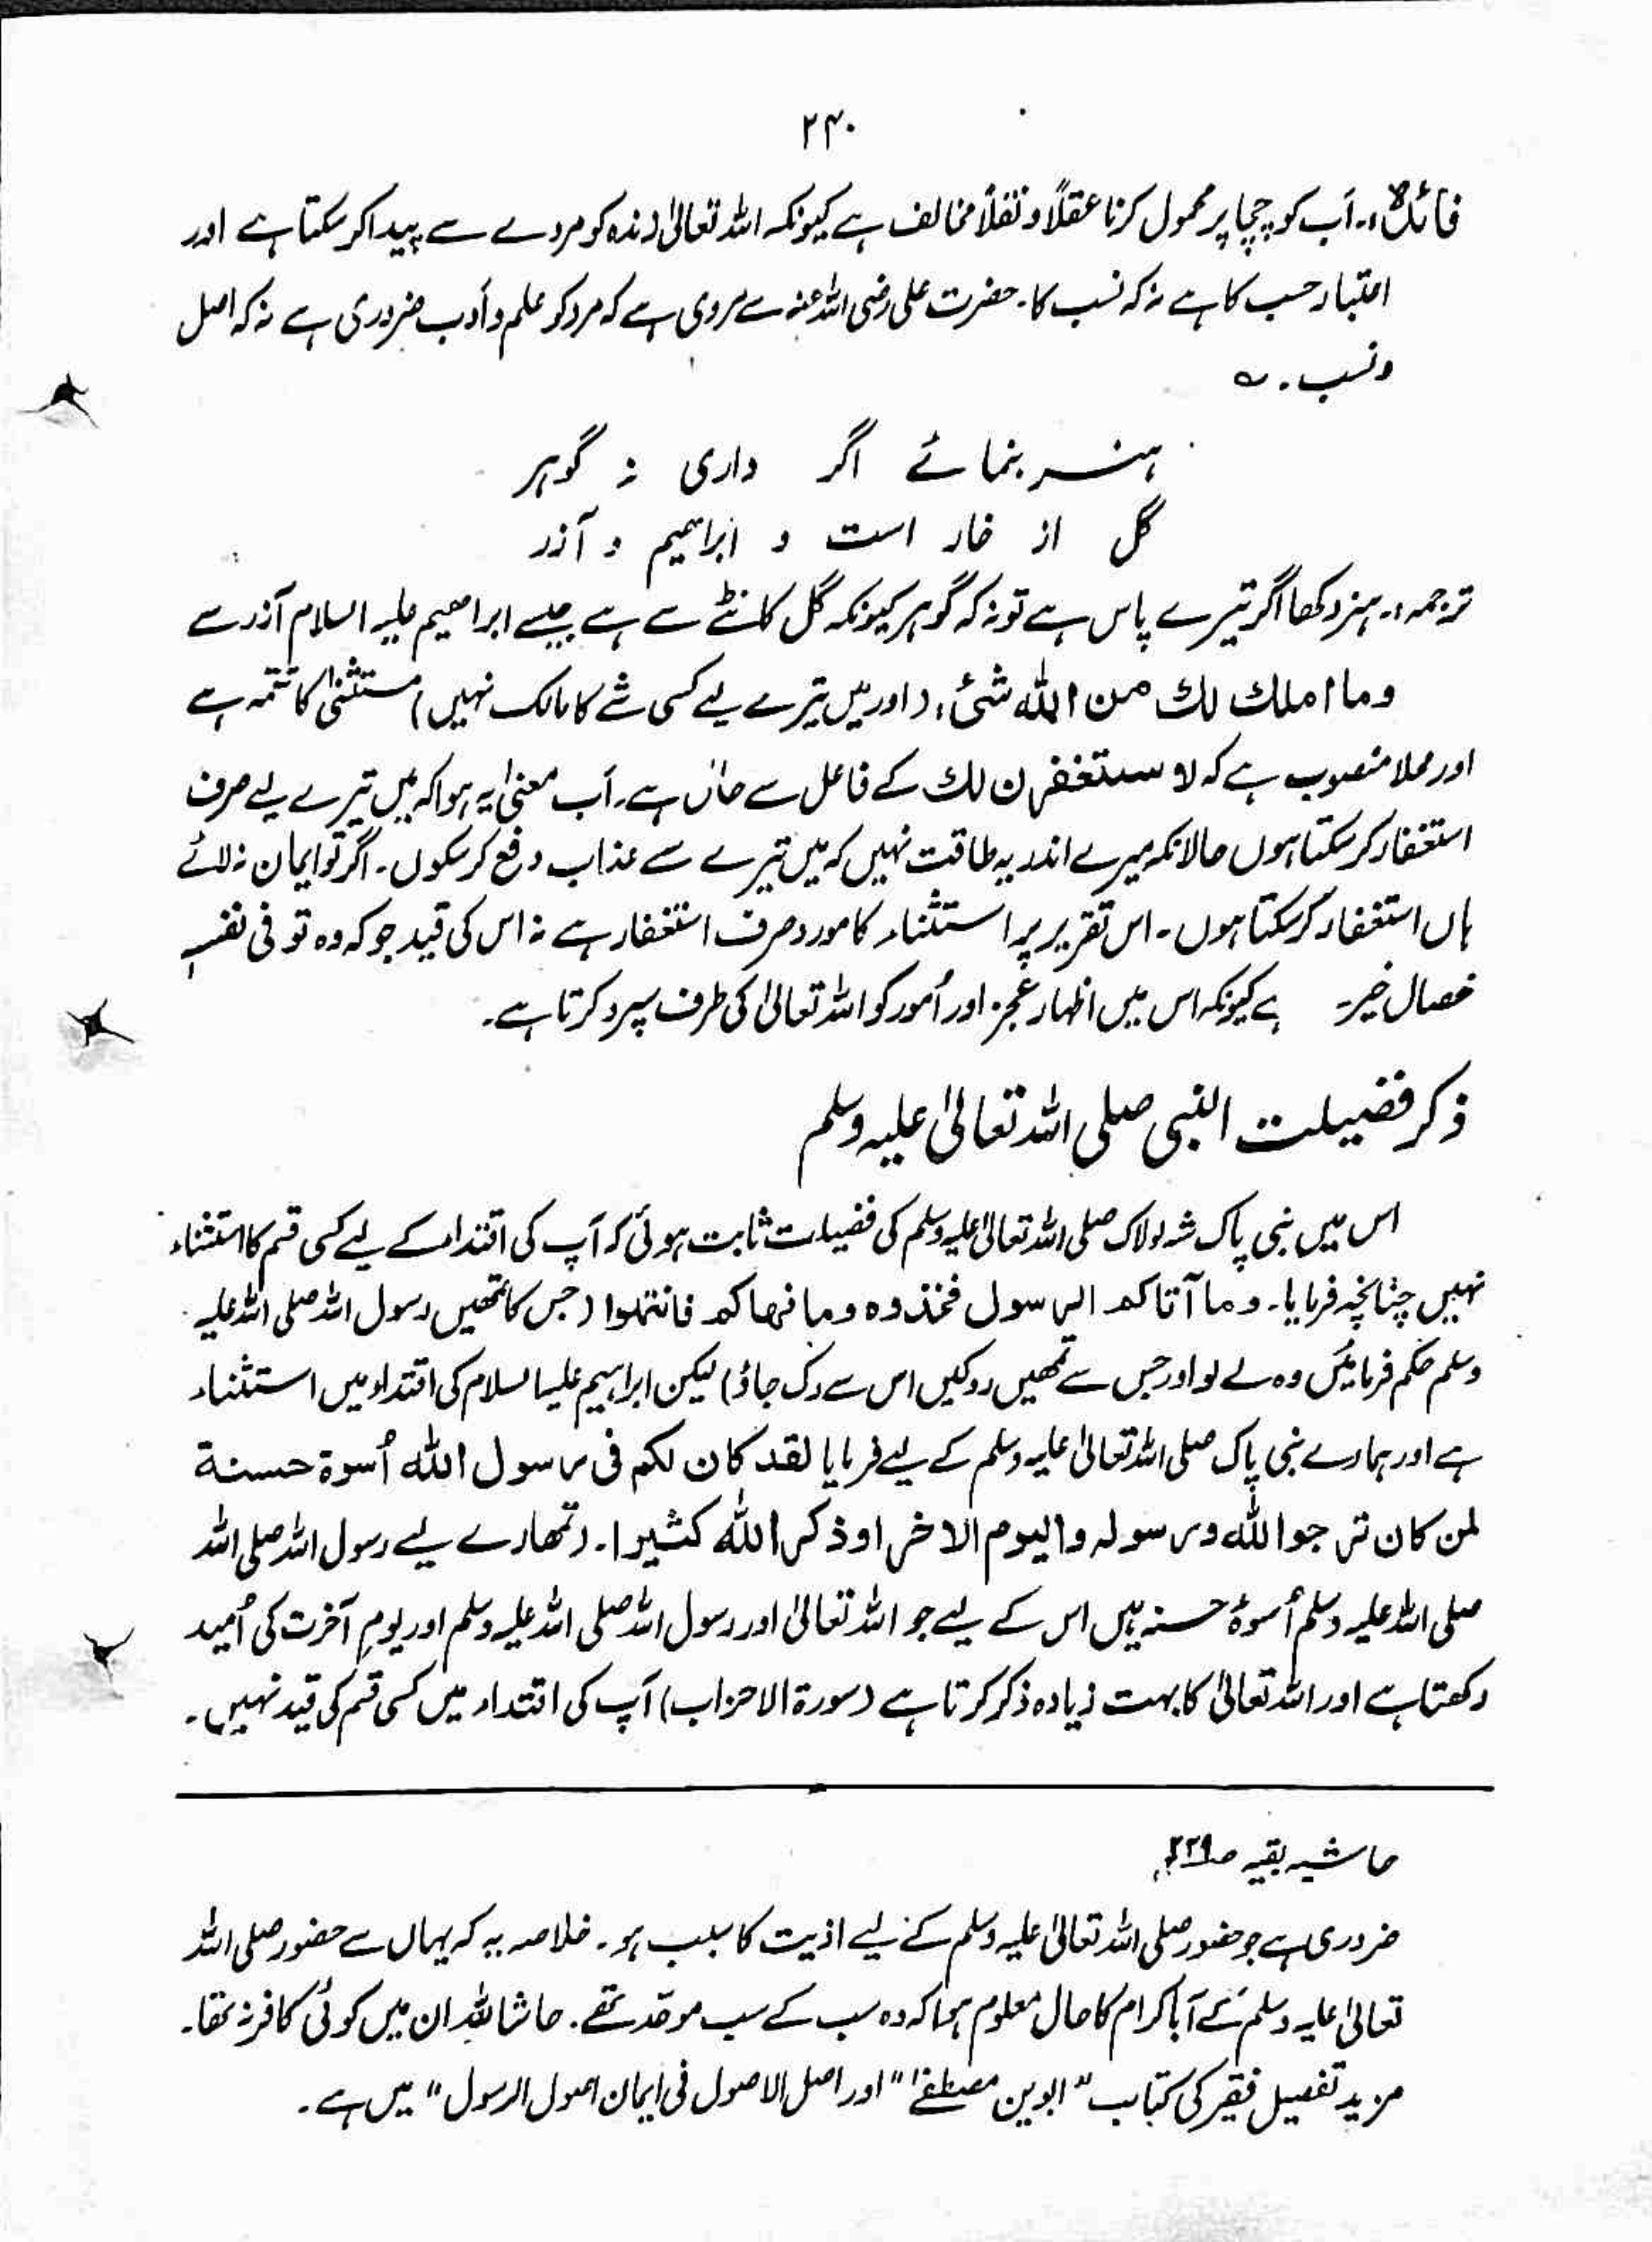 ۲۴۰
فائدہ:۔ اَب کو چچا پر محمول کرنا عقلاً و نقلاً مخالف ہے کیونکہ اللہ تعالیٰ زندہ کو مردے سے پیدا کر سکتا ہے اور
اعتبار حسب کا ہے نہ کہ نسب کا۔ حضرت علی رضی اللہ عنہ سے مروی ہے کہ مرد کو علم و اَدب ضروری ہے نہ کہ اصل
و نسب۔ ؎
ہنر بنمائے اگر داری نہ گوہر
گل از خار است و ابراہیم و آذر
ترجمہ:۔ ہنر دکھا اگر تیرے پاس ہے تو نہ کہ گوہر کیونکہ گل کانٹے سے ہے جیسے ابراھیم علیہ السلام آذر سے
وما املك لك من اللہ شئ، (اور میں تیرے لیے کسی شے کا مالک نہیں) مستثنیٰ کا تتمہ ہے
اور محلا منصوب ہے کہ لاستغفرن لك کے فاعل سے حال ہے۔ اَب معنیٰ یہ ہوا کہ میں تیرے لیے صرف
استغفار کر سکتا ہوں حالانکہ میرے اندر یہ طاقت نہیں کہ میں تیرے سے عذاب دفع کر سکوں۔ اگر تو ایمان نہ لائے
ہاں استغفار کر سکتا ہوں۔ اس تقریر پر استثناء کا مورد صرف استغفار ہے نہ اس کی قید جو کہ وہ تو فی نفسہٖ
خصال خیر۔ ہے کیونکہ اس میں اظہار عجز اور اُمور کو اللہ تعالیٰ کی طرف سپرد کرتا ہے۔
ذکر فضیلت النبی صلی اللہ تعالیٰ علیہ وسلم
اس میں نبی پاک شہ لولاک صلی اللہ تعالیٰ علیہ وسلم کی فضیلت ثابت ہوئی کہ آپ کی اقتداء کے لیے کسی قسم کا استثناء
نہیں چنانچہ فرمایا۔ وما آتاکم الرسول فخذوہ وما نہاکم فانتہوا (جس کا تمھیں رسول اللہ صلی اللہ علیہ
وسلم حکم فرمائیں وہ لے لو اور جس سے تمھیں روکیں اس سے رک جاؤ) لیکن ابراہیم علیہ السلام کی اقتداء میں استثناء
ہے اور ہمارے نبی پاک صلی اللہ تعالیٰ علیہ وسلم کے لیے فرمایا لقد کان لکم فی رسول اللہ اُسوة حسنة
لمن کان ترجوا اللہ ورسولہ والیوم الاخر اوذکر اللہ کثیرا۔ (تمھارے لیے رسول اللہ صلی اللہ
صلی اللہ علیہ وسلم اُسوۂ حسنہ ہیں اس کے لیے جو اللہ تعالیٰ اور رسول اللہ صلی اللہ علیہ وسلم اور یومِ آخرت کی اُمید
رکھتا ہے اور اللہ تعالیٰ کا بہت زیادہ ذکر کرتا ہے (سورۃ الاحزاب) آپ کی اقتداء میں کسی قسم کی قید نہیں۔
حاشیہ بقیہ صـ۲۳۹
ضروری ہے جو حضور صلی اللہ تعالیٰ علیہ وسلم کے لیے اذیت کا سبب ہو۔ خلاصہ یہ کہ یہاں سے حضور صلی اللہ
تعالیٰ علیہ وسلم کے آبا کرام کا حال معلوم ہوا کہ وہ سب کے سب موحّد تھے۔ حاشا للہ ان میں کوئی کافر نہ تھا۔
مزید تفصیل فقیر کی کتاب "ابوین مصطفےٰ" اور اصل الاصول فی ایمان اصول الرسول" میں ہے۔